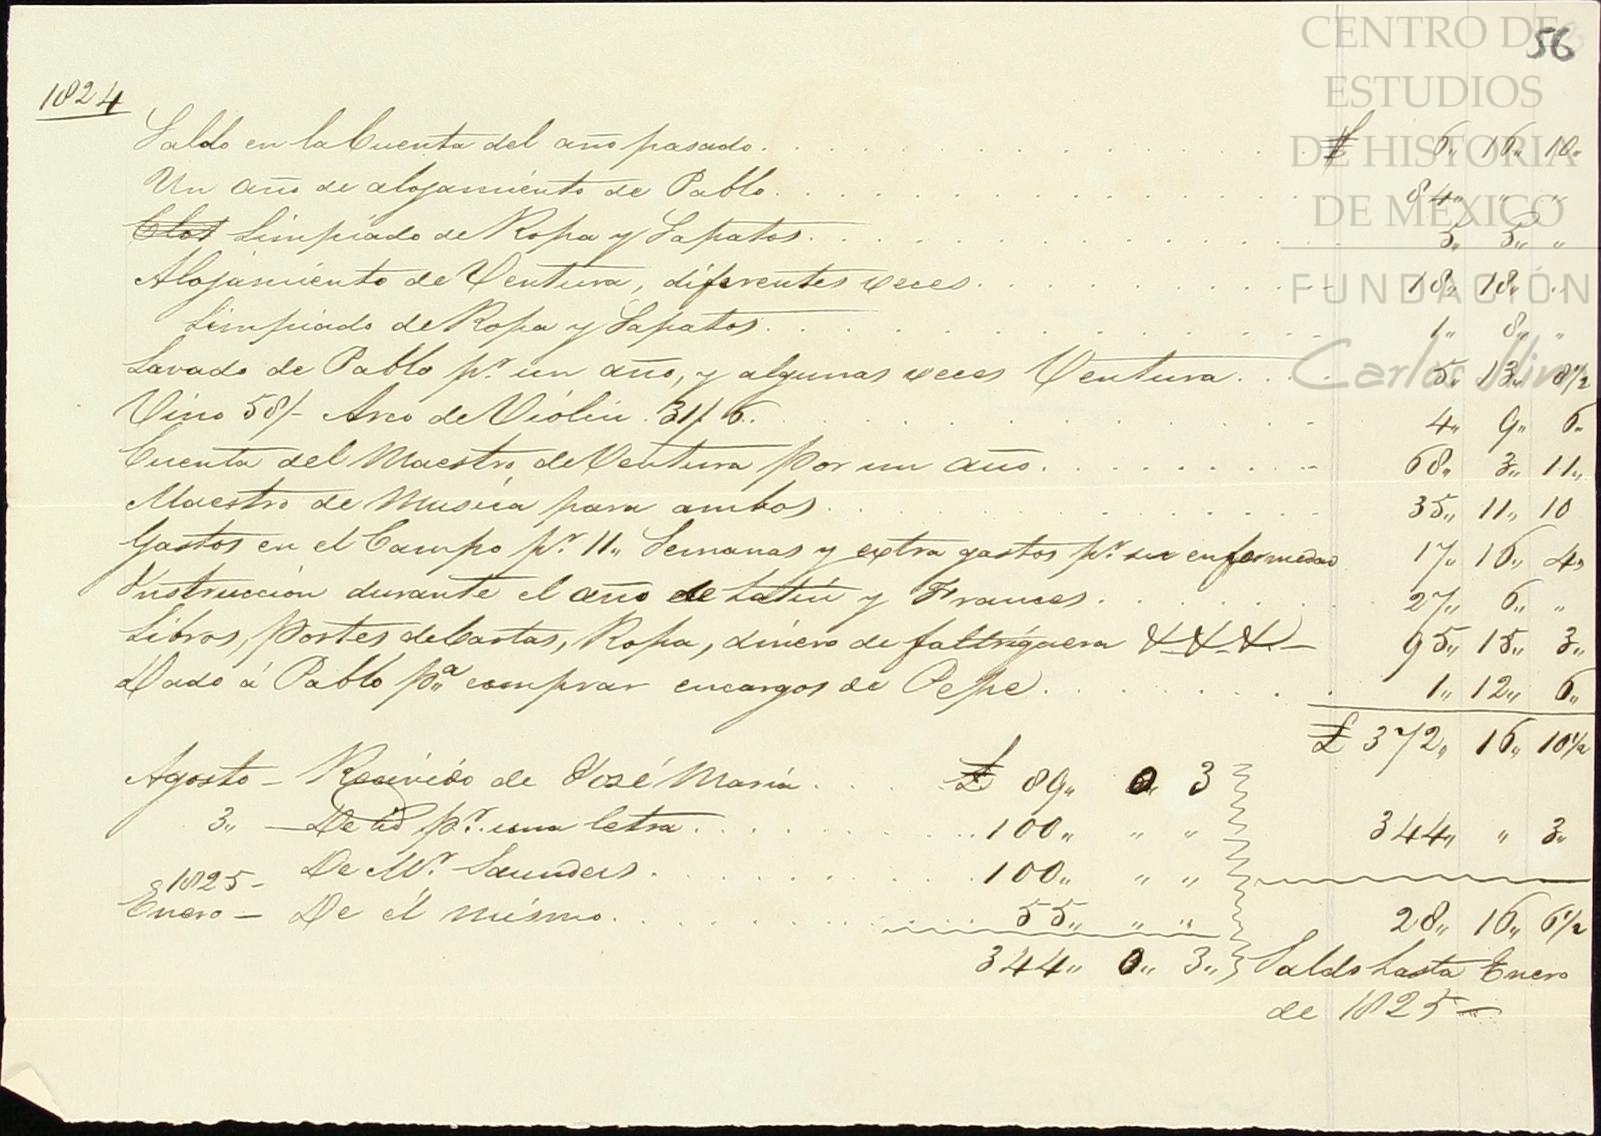 CENTRO DE
ESTUDIOS
DE HISTORIA
DE MÉXICO
FUNDACIÓN
Carlos Slim
56
1824
Saldo en la Cuenta del año pasado. £ 6,, 16,, 10,,
Un año de alojamiento de Pablo. 84,, ,, ,,
Clot Limpiado de Ropa y Sapatos. 5,, 5,, ,,
Alojamiento de Ventura, diferentes veces. 18,, 18,, ,,
Limpiado de Ropa y Sapatos. 1,, 8,, ,,
Lavado de Pablo pr. un año, y algunas veces Ventura. 5,, 13,, 8 1/2
Vino 58/- Arco de Violin 31/6. 4,, 9,, 6,,
Cuenta del Maestro de Ventura por un año. 68,, 3,, 11,,
Maestro de Musica para ambos. 35,, 11,, 10
Gastos en el Campo pr. 11,, Semanas y extra gastos pr. su enfermedad 17,, 16,, 4,,
Instruccion durante el año de Latin y Frances. 27,, 6,, ,,
Libros, portes de Cartas, Ropa, dinero de faltriquera &.&.&. 95,, 15,, 3,,
Dado á Pablo pa. comprar encargos de Pepe. 1,, 12,, 6,,
£ 372,, 16,, 10 1/2
Agosto - Recivido de José Maria £ 89,, 0,, 3
3,, - De id pr. una letra. 100,, ,, ,, 344,, ,, 3,,
De Mr. Saunders. 100,, ,, ,,
1825-
Enero - De él mismo. 55,, ,, ,, 28,, 16,, 6 1/2
344,, 0,, 3,, Saldo hasta Enero
de 1825 -